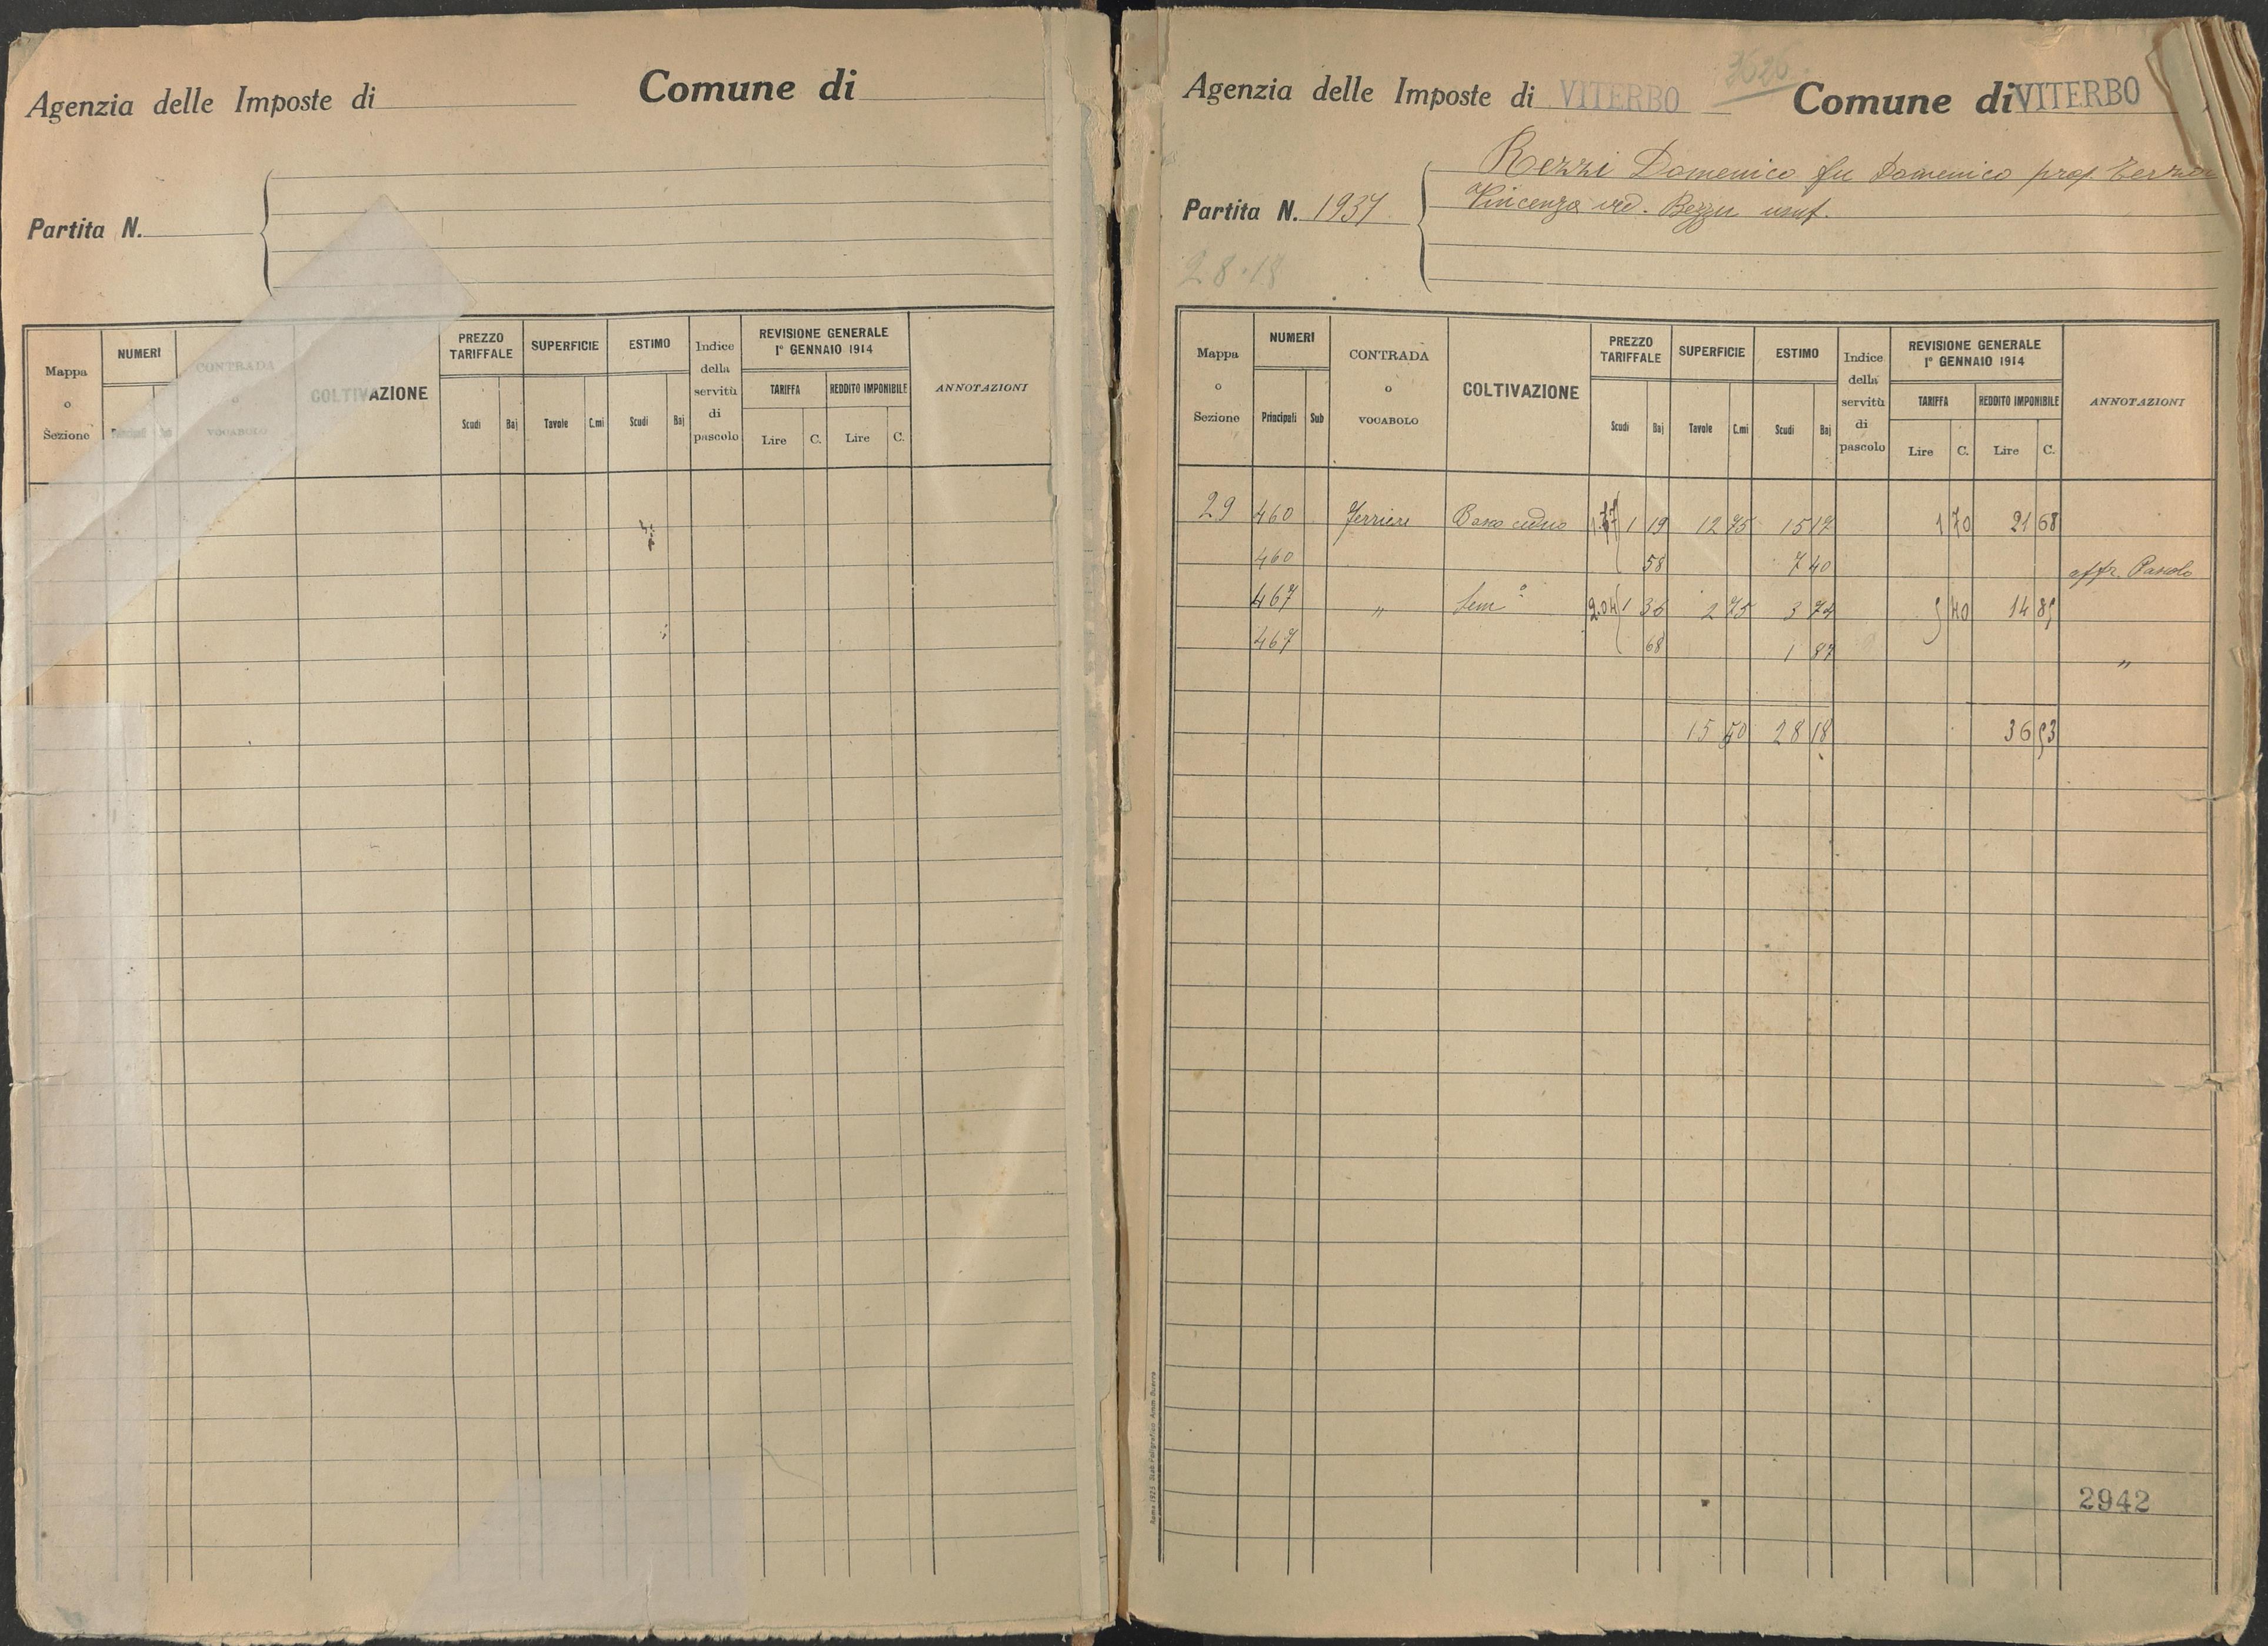 Agenzia delle Imposte di
Comune di
Partita N.
Mappa o Sezione
NUMERI
Principali Sub
CONTRADA o VOCABOLO
COLTIVAZIONE
PREZZO TARIFFALE
Scudi Baj
SUPERFICIE
Tavole C.mi
ESTIMO
Scudi Baj
Indice della servitù di pascolo
REVISIONE GENERALE
1° GENNAIO 1914
TARIFFA REDDITO IMPONIBILE
Lire C. Lire C.
ANNOTAZIONI
3626
Agenzia delle Imposte di VITERBO Comune di VITERBO
Rezzi Domenico fu Domenico prop.
Partita N. 1937 Vincenza ved. Bezzu usuf.
28.18
Mappa o Sezione
NUMERI
Principali Sub
CONTRADA o VOCABOLO
COLTIVAZIONE
PREZZO TARIFFALE
Scudi Baj
SUPERFICIE
Tavole C.mi
ESTIMO
Scudi Baj
Indice della servitù di pascolo
REVISIONE GENERALE
1° GENNAIO 1914
TARIFFA REDDITO IMPONIBILE
Lire C. Lire C.
ANNOTAZIONI
29 460 Ferriere Bosco ceduo 1 19 12 75 15 17 1 70 21 68
460 58 7 40 affr. Pascolo
467 " Sem° 2.04 1 36 2 75 3 74 5 40 14 85
467 68 1 87 "
15 50 28 18 36 53
2942
Roma 1925 Stab. Poligrafico Amm. Guerra